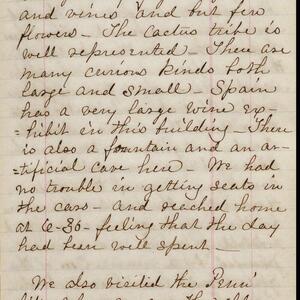 and vines and but few
flowers - The cactus tribe is
well represented - There are
many curious kinds both
large and small - Spain
has a very large wine ex-
=hibit in this building - There
is also a fountain and an ar-
=tificial cave here - We had
no trouble in getting seats in
the cars - and reached home
at 6-30 - feeling that the day
had been well spent -
We also visited the Penn'